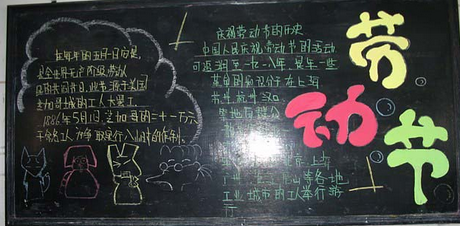 在每年的五月一日,是
全世界无产阶级劳动
起源于美国
芝加哥城的工人大罢工
1886年5月1日,芝加哥的二十一万六
千余名工人为争取实行八小时工作制
庆祝劳动节的历史
中国人民庆祝劳动节的活动
可追溯至一九一八年 是年一些
革命的知识分子在上海
苏州 杭州 汉口
等地
上海
广州 唐山等各地
工业城市的工人举行游
行
劳
动
节